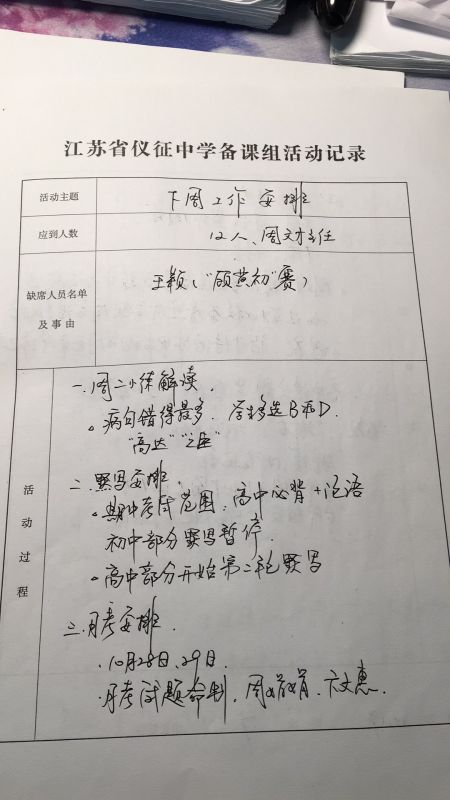 江苏省仪征中学备课组活动记录
活动主题 下周工作安排
应到人数 12人、周文才主任
缺席人员名单及事由 王颖("领英初"赛)
活动过程
一.周二小练解读.
。病句错得最多. 学生多选B和D.
"高达""之巨"
二.默写安排.
。期中考试范围:高中必背+论语
初中部分默写暂停.
。高中部分开始第二轮默写
三.月考安排.
.10月28日、29日.
.月考试题命制.